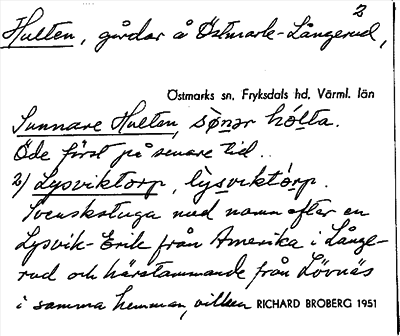 2
Hulten, gårdar å Östmark-Långerud,
Östmarks sn, Fryksdals hd, Värml. län
Sunnare Hulten, sǿnər hólta.
Öde först på senare tid..
2) Lysviktorp, lỳsviktórp.
Svenskstuga med namn efter en
Lysvik-Erik från Amerika i Långe-
rud och härstammande från Lövnäs
i samma hemman, vilken RICHARD BROBERG 1951